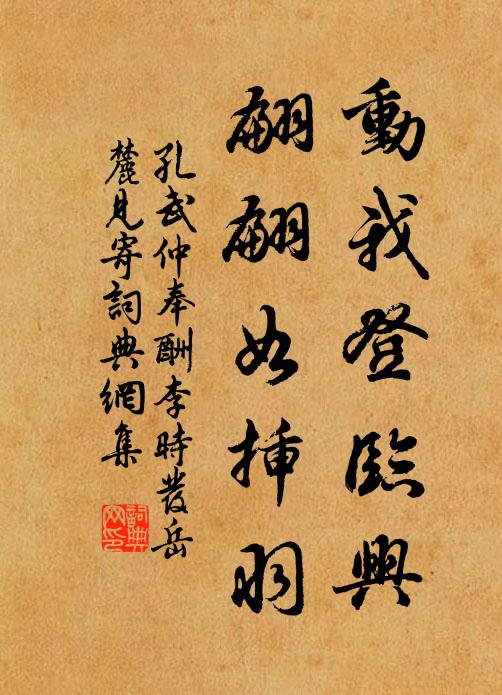 動我登臨興
翩翩如插羽
孔武仲奉酬李時發岳
麓見寄詞典網集
詞典
网印